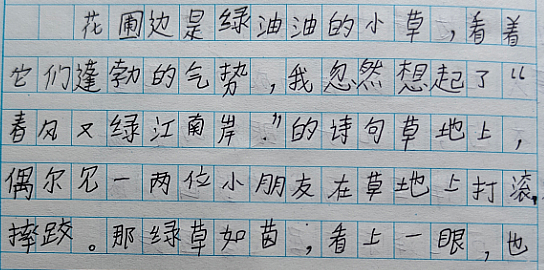 花圃边是绿油油的小草,看着
它们蓬勃的气势,我忽然想起了“
春风又绿江南岸.”的诗句草地上,
偶尔见一两位小朋友在草地上打滚,
摔跤。那绿草如茵,看上一眼,也